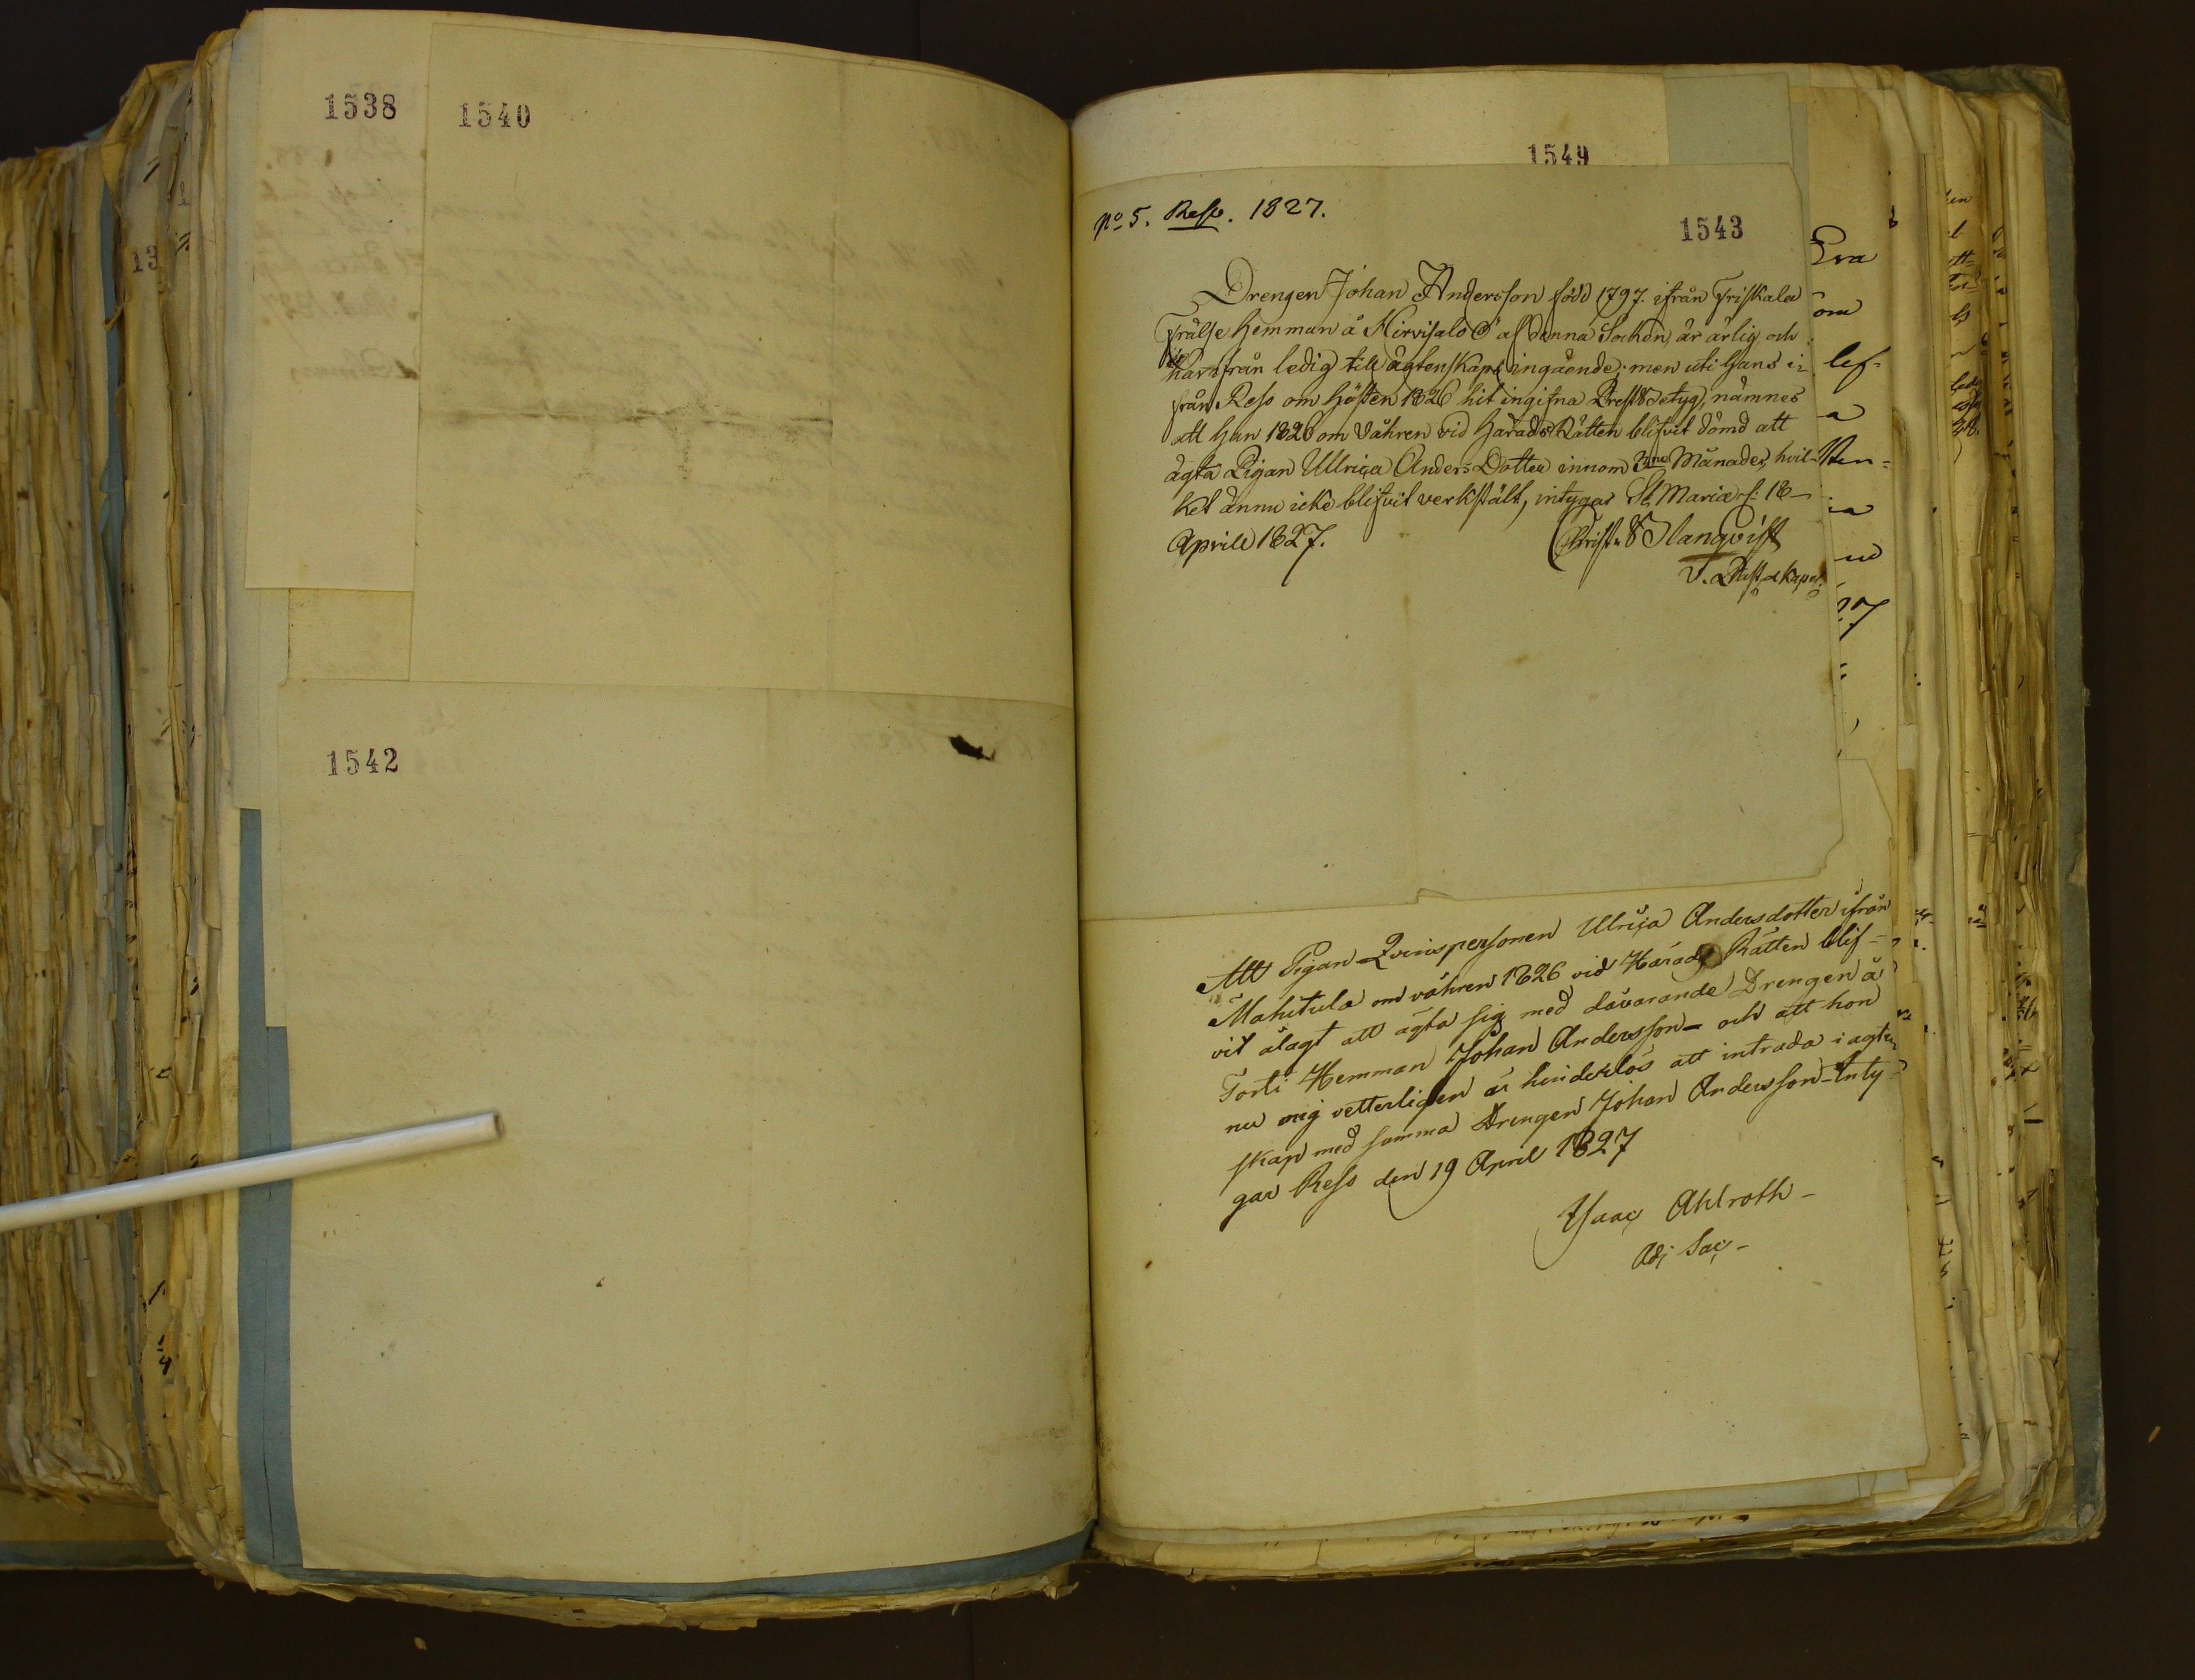 1538
1540
1542
13
1549
No 5. Reso. 1827.
1543
Drengen Johan Andersson född 1797. ifrån Friskala
Frälse Hemman å Hirvisalo Ö af denna Socken, är ärlig och
härifrån ledig till ägtenskaps ingående; men uti hans i-
från Reso om hösten 1826 hit ingifna Prest Betyg, nämnes
att han 1826 om Våhren vid Härads Rätten blifvit dömd att
ägta Pigan Ullrica Anders Dotter innom 3ne Månader, hvil-
ket ännu icke blifvit verkstält, intygar St Mariæ d: 18
Aprill 1827.
V. Past. o Kapel:
Eva
om
lef-
a
a
27
Att Pigan Qvinspersonen Ulrica Andersdotter ifrån
Mahitula om våhren 1826 vid Härads Rätten blif-
vit ålagt att ägta sig med davarande Drengen å
Torti Hemman Johan Andersson - och att hon
nu mig vetterligen är hinderlös att intrada i agten
skap med samma Drengen Johan Andersson - Inty-
gar Reso den 19 April 1827
Isaac Ahlroth -
Adj Sac -